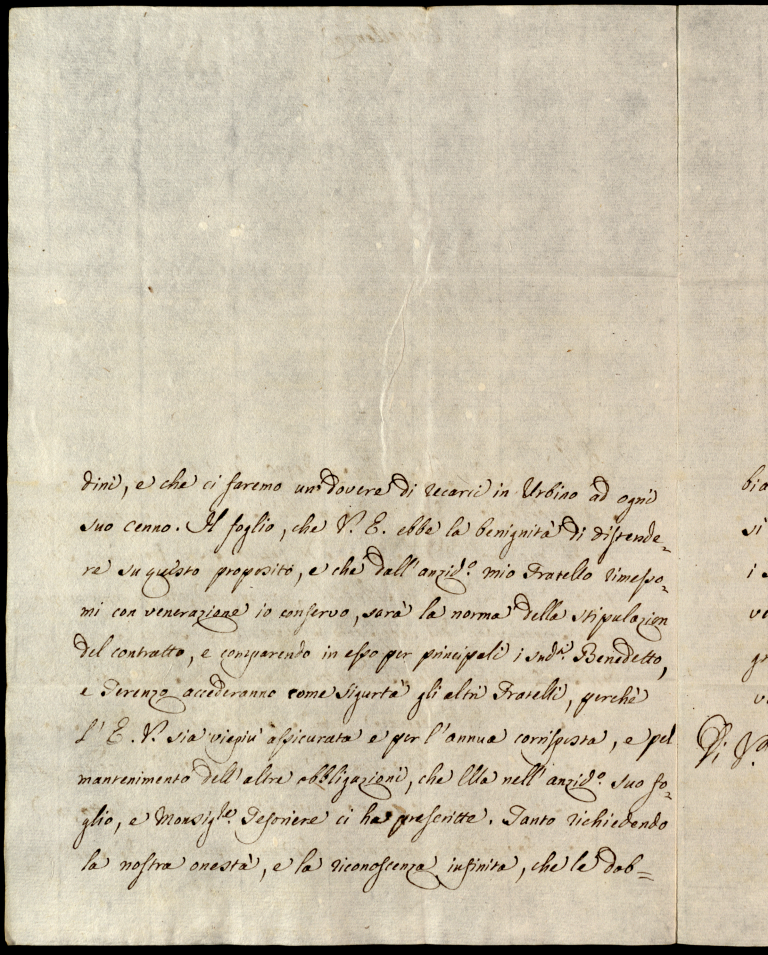 dini, e che ci faremo un dovere di recarci in Urbino ad ogni
suo cenno. Il foglio, che V. E. ebbe la benignità di distende=
re su questo proposito, e che dall'anzid.º mio Fratello rimesso=
mi con venerazione io conservo, sarà la norma della stipulazion
del contratto, e comparendo in esso per principali i sud.ti Benedetto,
e Terenzo accederanno come sigurtà gli altri Fratelli, perchè
l'E. V. sia viepiù assicurata e per l'annua corrisposta, e pel
mantenimento dell'altre obbligazioni, che Ella nell'anzid.º suo fo=
glio, e Monsig.re Tesoriere ci ha prescritte. Tanto richiedendo
la nostra onestà, e la riconoscenza infinita, che le dob=
bia
si
i s
ve
gr
v
Di V.ª